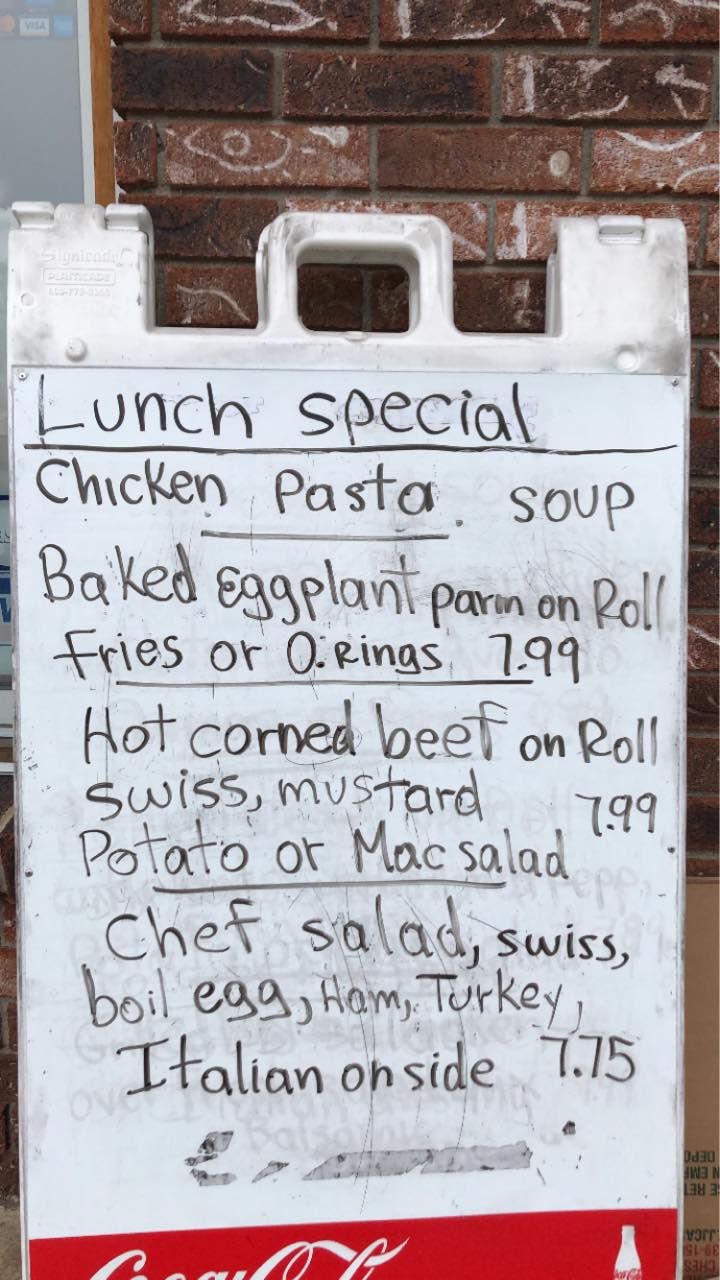 VISA
Signicade
PLASTICADE
Lunch special
Chicken Pasta soup
Baked Eggplant parm on Roll
Fries or O.Rings 7.99
Hot corned beef on Roll
swiss, mustard 7.99
Potato or Mac salad
Chef salad, swiss,
boil egg, Ham, Turkey,
Italian on side 7.75
Coca-Cola